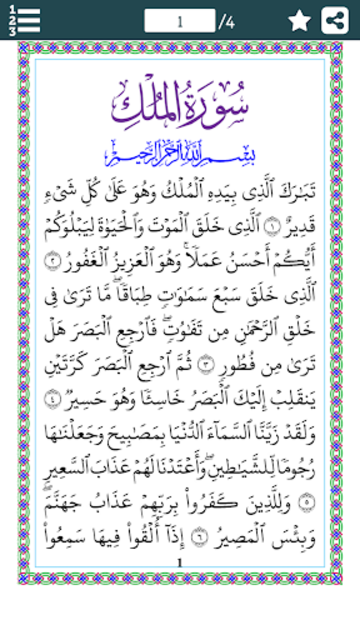 1 2 3
1 /4
سُورَةُ الْمُلْكِ
بِسْمِ اللَّهِ الرَّحْمَٰنِ الرَّحِيمِ
تَبَٰرَكَ ٱلَّذِى بِيَدِهِ ٱلْمُلْكُ وَهُوَ عَلَىٰ كُلِّ شَىْءٍ
قَدِيرٌ ۝١ ٱلَّذِى خَلَقَ ٱلْمَوْتَ وَٱلْحَيَوٰةَ لِيَبْلُوَكُمْ
أَيُّكُمْ أَحْسَنُ عَمَلًا ۚ وَهُوَ ٱلْعَزِيزُ ٱلْغَفُورُ ۝٢
ٱلَّذِى خَلَقَ سَبْعَ سَمَٰوَٰتٍ طِبَاقًا ۖ مَّا تَرَىٰ فِى
خَلْقِ ٱلرَّحْمَٰنِ مِن تَفَٰوُتٍ ۖ فَٱرْجِعِ ٱلْبَصَرَ هَلْ
تَرَىٰ مِن فُطُورٍ ۝٣ ثُمَّ ٱرْجِعِ ٱلْبَصَرَ كَرَّتَيْنِ
يَنقَلِبْ إِلَيْكَ ٱلْبَصَرُ خَاسِئًا وَهُوَ حَسِيرٌ ۝٤
وَلَقَدْ زَيَّنَّا ٱلسَّمَآءَ ٱلدُّنْيَا بِمَصَٰبِيحَ وَجَعَلْنَٰهَا
رُجُومًا لِّلشَّيَٰطِينِ ۖ وَأَعْتَدْنَا لَهُمْ عَذَابَ ٱلسَّعِيرِ
۝٥ وَلِلَّذِينَ كَفَرُوا۟ بِرَبِّهِمْ عَذَابُ جَهَنَّمَ ۖ
وَبِئْسَ ٱلْمَصِيرُ ۝٦ إِذَآ أُلْقُوا۟ فِيهَا سَمِعُوا۟
1